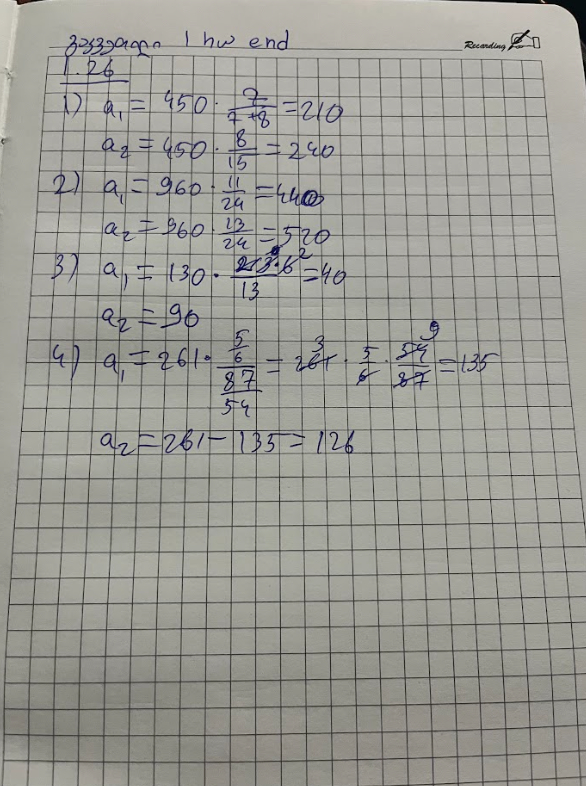 პარაგრაფი 1 hw end
Recording
1.26
1) a₁ = 450 · 7/(7+8) = 210
a₂ = 450 · 8/15 = 240
2) a₁ = 960 · 11/24 = 440
a₂ = 960 · 13/24 = 520
3) a₁ = 130 · /13 = 40
a₂ = 90
4) a₁ = 261 · (5/6)/(87/54) = 261 3 · 5/6 · 54 9/87 = 135
a₂ = 261 - 135 = 126